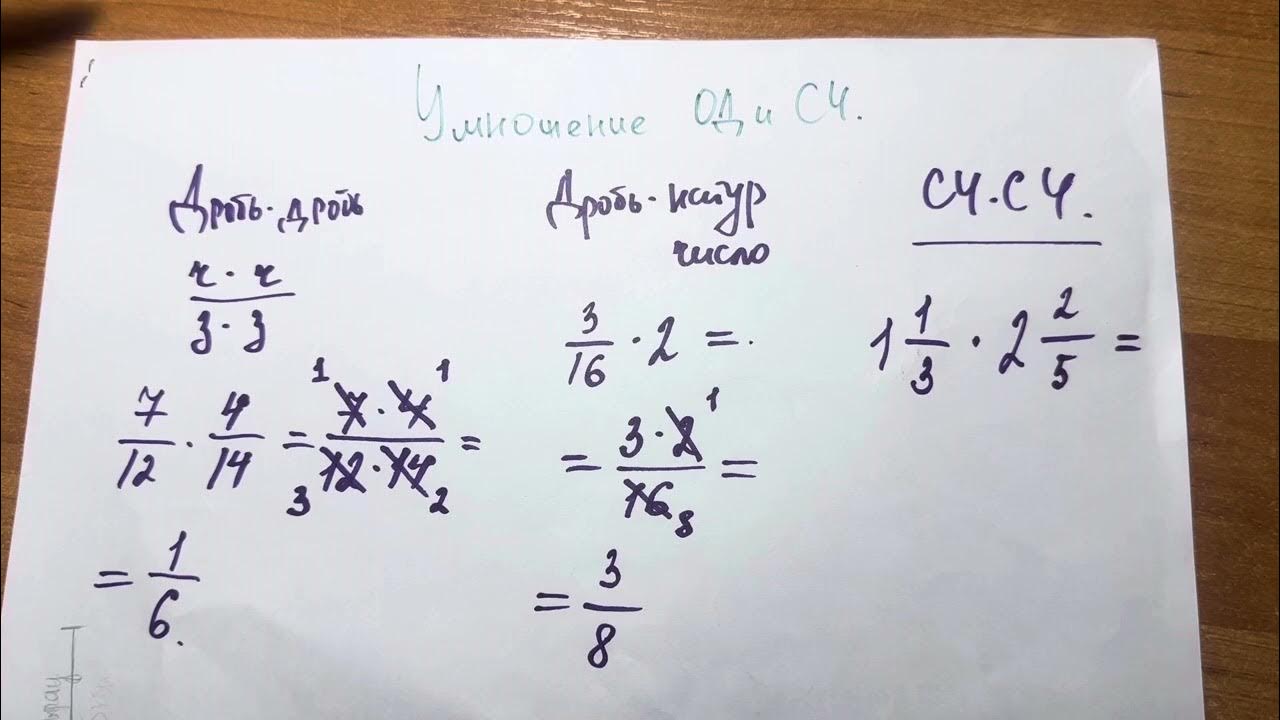 Умножение ОД и СЧ.
Дробь · дробь
ч · ч
з · з
7/12 · 4/14 = 7 · 4 / 12 · 14 =
1 1
3 2
= 1/6.
Дробь · натур
число
3/16 · 2 =
= 3 · 2 / 16 =
1
8
= 3/8
СЧ · СЧ.
1 1/3 · 2 2/5 =